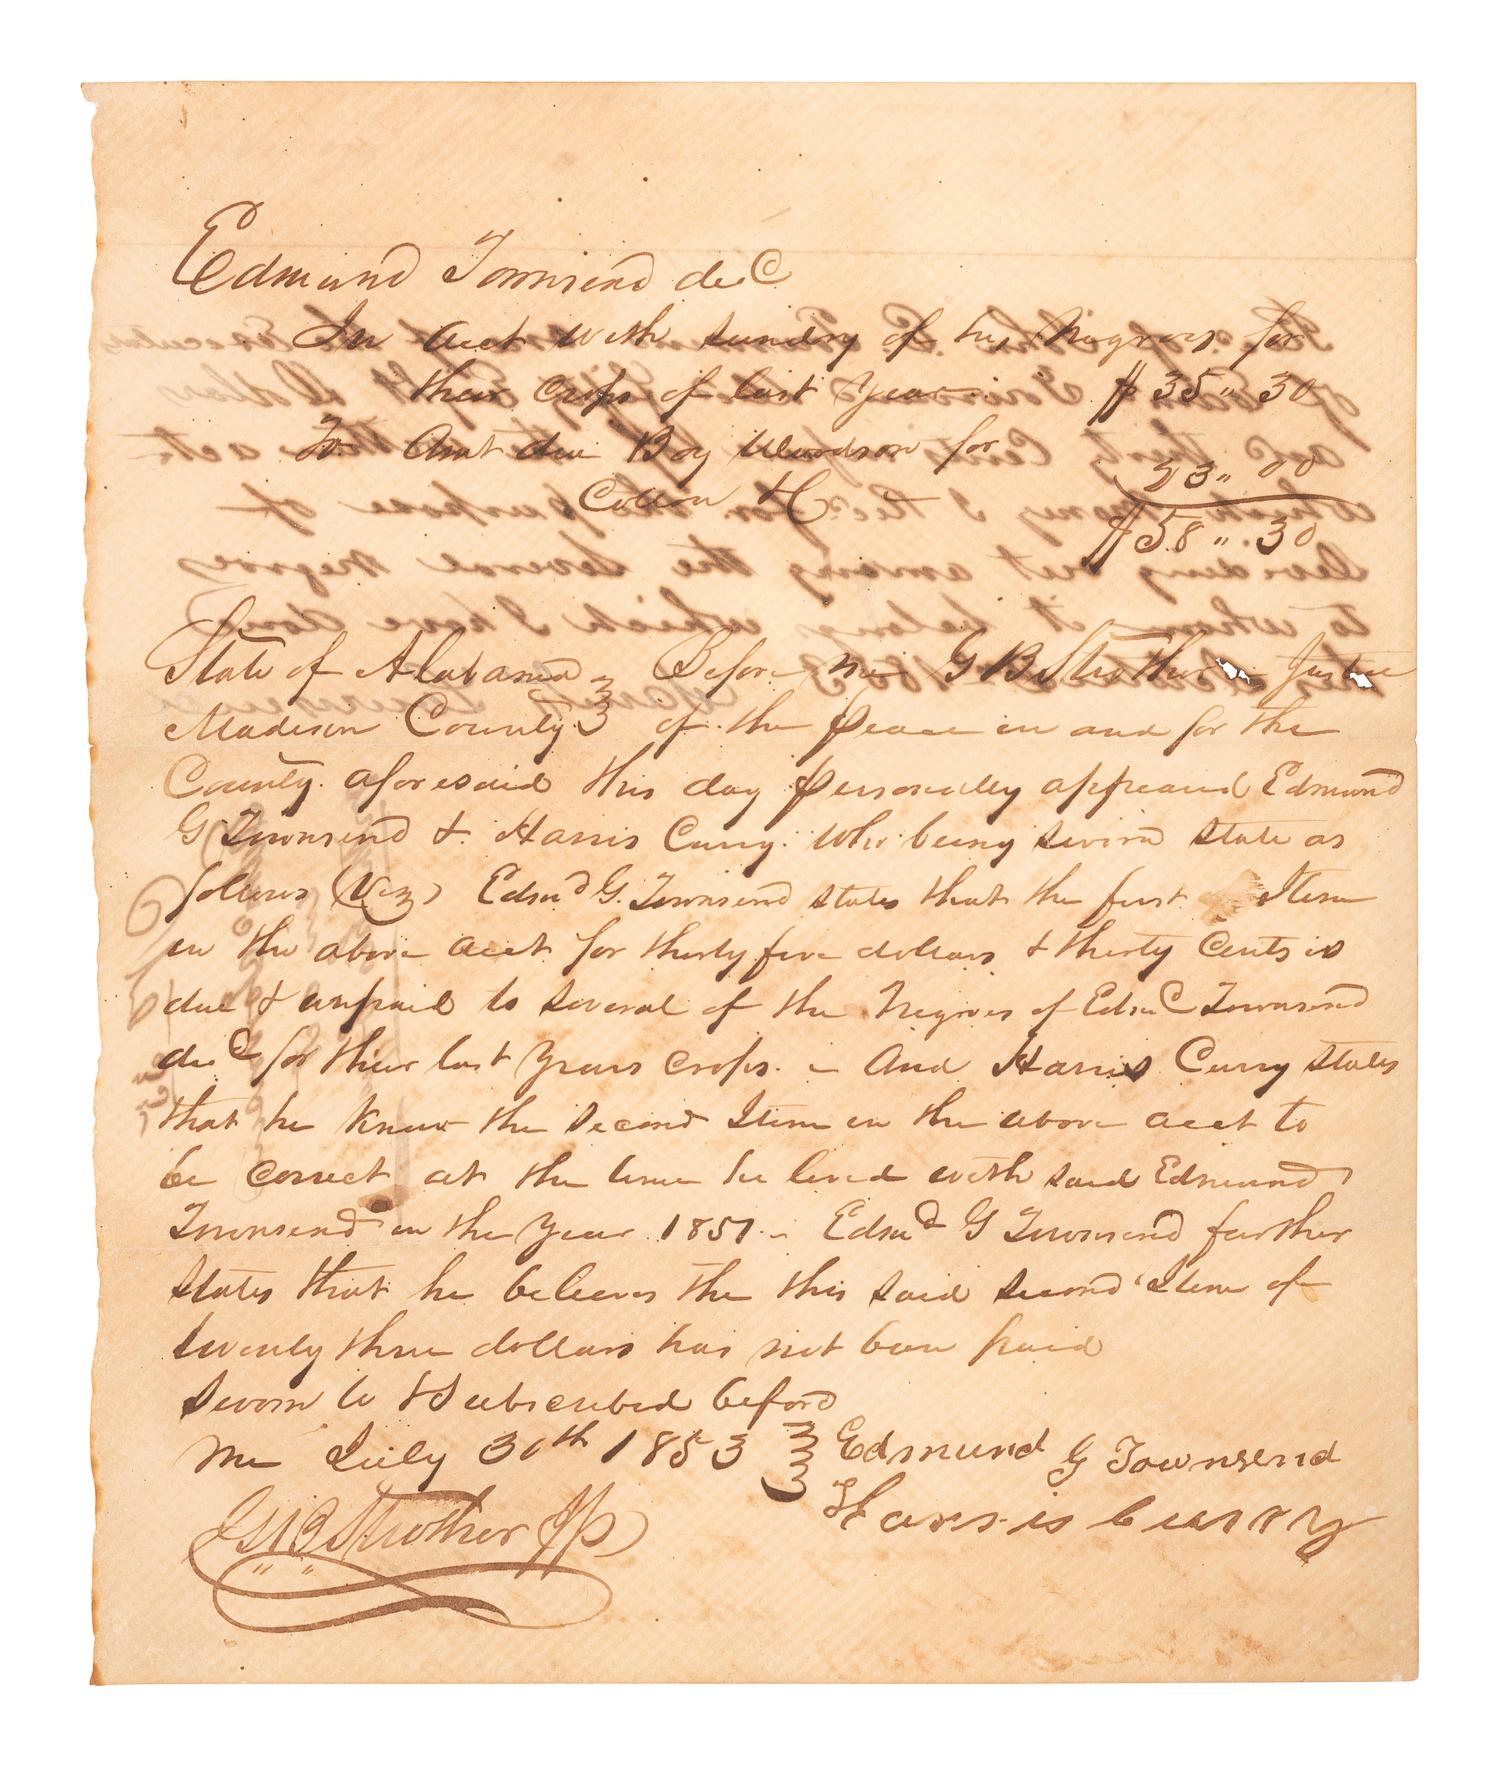 Edmund Townsend decd
In acct with sundry of his Negroes for
their crops of last year $ 35 " 30
To Amt due Boy Woodson for
Cotton &C 23 " 00
$ 58 " 30
State of Alabama Before me G B Strother Justice
Madison County of the peace in and for the
County aforesaid this day personally appeared Edmund
G Townsend & Harris Curry who being sworn state as
follows (Viz) Edmd G. Townsend states that the first Item
in the above acct for thirty five dollars & thirty Cents is
due & unpaid to several of the Negroes of Edmd Townsend
decd for their last years crops. And Harris Curry states
that he knew the second Item in the above acct to
be correct at the time he lived with said Edmund
Townsend in the year 1851 Edmd G Townsend further
states that he believes the this said second Item of
twenty three dollars has not been paid
Sworn to & Subscribed before
me July 30th 1853 Edmund G Townsend
G B Strother JP Harris Curry